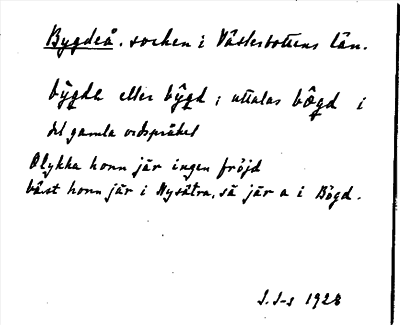 Bygdeå. socken i Västerbottens län.
bygde eller bygd; uttalas bögd i
det gamla ordspråket
Olykka honn jär ingen fröjd
bäst honn jär i Nysätra, så jär a i Bögd.
J. J-s 1928